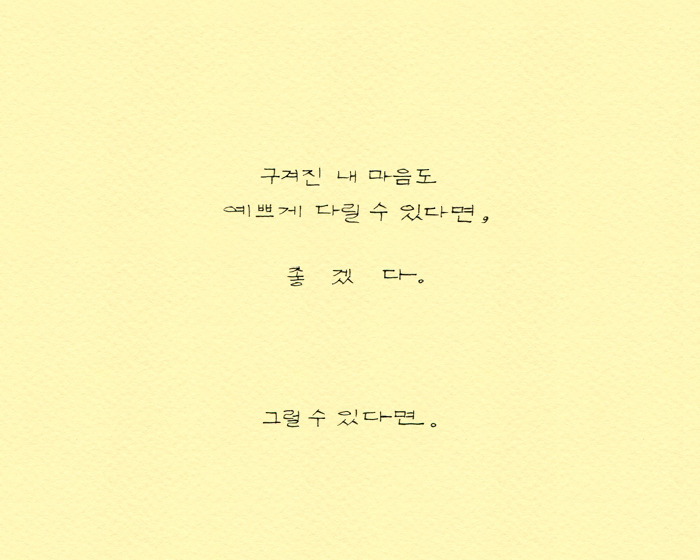 구겨진 내 마음도
예쁘게 다릴 수 있다면,
좋 겠 다.
그럴 수 있다면.